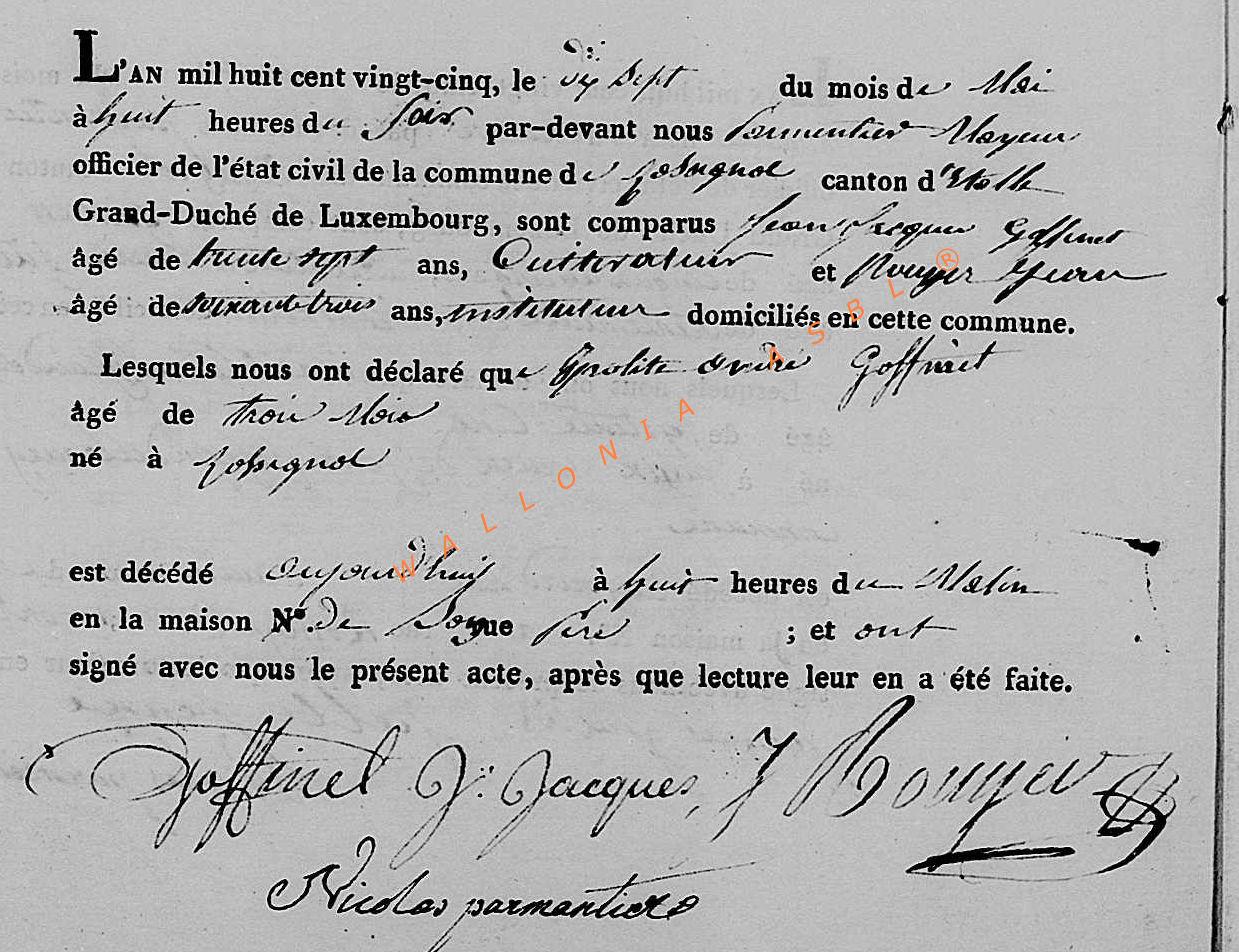 L'AN mil huit cent vingt-cinq, le dix sept du mois de Mai
à huit heures du Soir par-devant nous Parmentier Mayeur
officier de l'état civil de la commune de Rossignol canton d'Etalle
Grand-Duché de Luxembourg, sont comparus Jean Jacques Goffinet
âgé de trente sept ans, Cultivateur et Rouyer Jean
âgé de soixante trois ans, instituteur domiciliés en cette commune.
Lesquels nous ont déclaré que hypolite andre Goffinet
âgé de trois Mois
né à Rossignol
est décédé aujourdhuy à huit heures du Matin
en la maison N°. de Son rue Pere ; et ont
signé avec nous le présent acte, après que lecture leur en a été faite.
Goffinet J: Jacques, J Rouyer
Nicolas parmantier
WALLONIA ASBL®